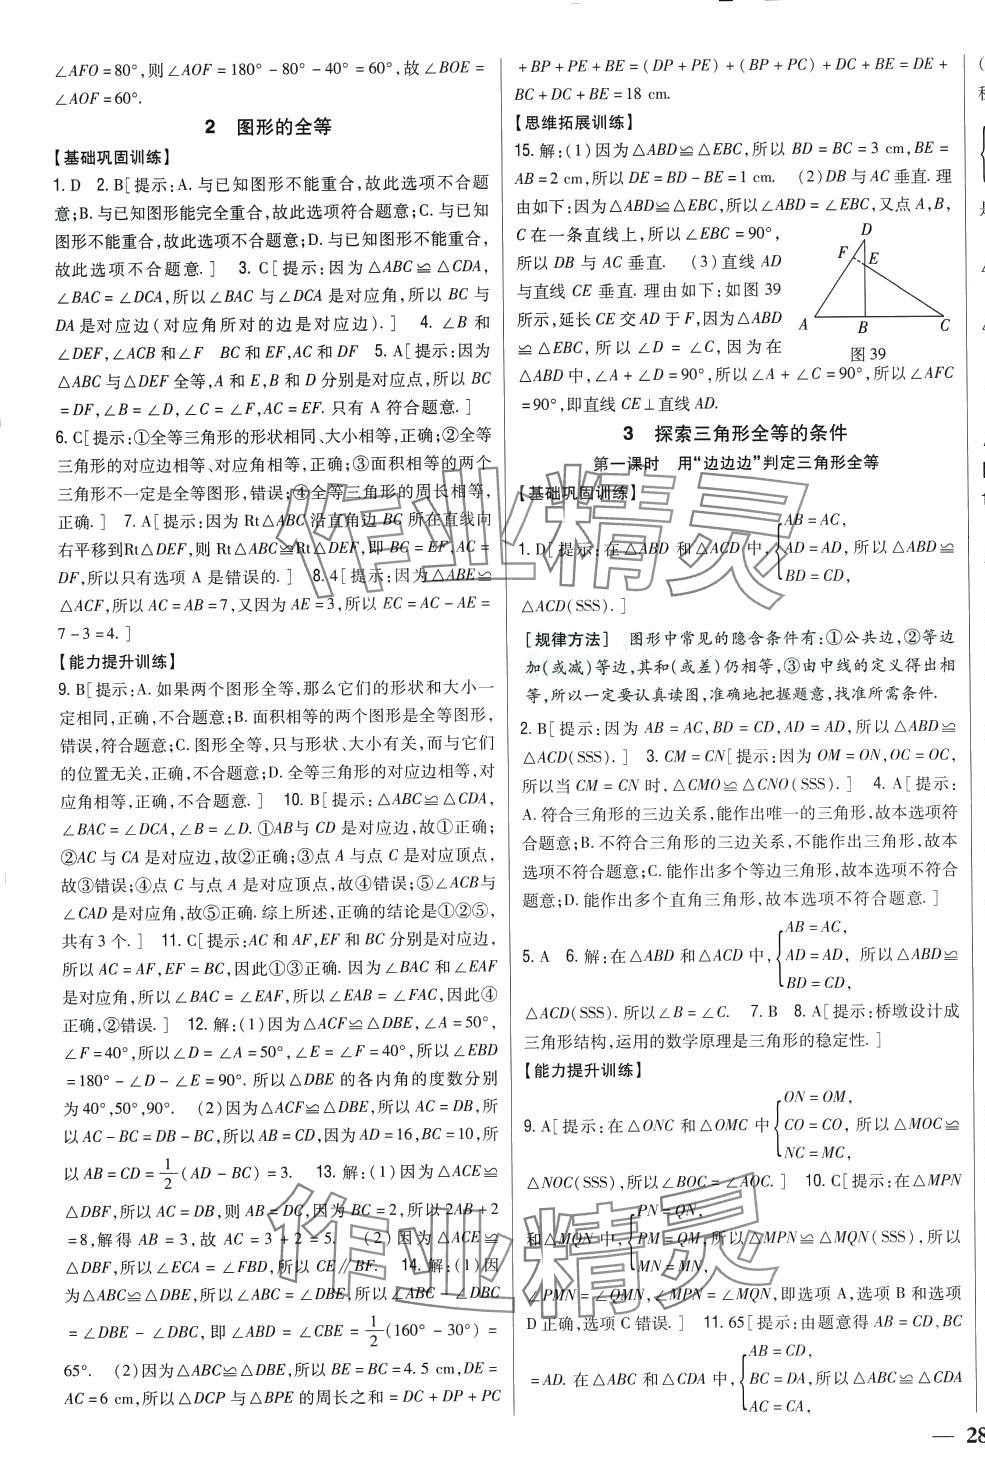 ∠AFO=80°,则∠AOF=180°-80°-40°=60°,故∠BOE=
∠AOF=60°.
2 图形的全等
【基础巩固训练】
1. D 2. B[提示:A. 与已知图形不能重合,故此选项不合题
意;B. 与已知图形能完全重合,故此选项符合题意;C. 与已知
图形不能重合,故此选项不合题意;D. 与已知图形不能重合,
故此选项不合题意. ] 3. C[提示:因为△ABC≌△CDA,
∠BAC=∠DCA,所以∠BAC与∠DCA是对应角,所以BC与
DA是对应边(对应角所对的边是对应边). ] 4. ∠B和
∠DEF,∠ACB和∠F BC和EF,AC和DF 5. A[提示:因为
△ABC与△DEF全等,A和E,B和D分别是对应点,所以BC
=DF,∠B=∠D,∠C=∠F,AC=EF. 只有A符合题意. ]
6. C[提示:①全等三角形的形状相同、大小相等,正确;②全等
三角形的对应边相等、对应角相等,正确;③面积相等的两个
三角形不一定是全等图形,错误;④全等三角形的周长相等,
正确. ] 7. A[提示:因为Rt△ABC沿直角边BC所在直线向
右平移到Rt△DEF,则Rt△ABC≌Rt△DEF,即BC=EF,AC=
DF,所以只有选项A是错误的. ] 8. 4[提示:因为△ABE≌
△ACF,所以AC=AB=7,又因为AE=3,所以EC=AC-AE=
7-3=4. ]
【能力提升训练】
9. B[提示:A. 如果两个图形全等,那么它们的形状和大小一
定相同,正确,不合题意;B. 面积相等的两个图形是全等图形,
错误,符合题意;C. 图形全等,只与形状、大小有关,而与它们
的位置无关,正确,不合题意;D. 全等三角形的对应边相等,对
应角相等,正确,不合题意. ] 10. B[提示:△ABC≌△CDA,
∠BAC=∠DCA,∠B=∠D. ①AB与CD是对应边,故①正确;
②AC与CA是对应边,故②正确;③点A与点C是对应顶点,
故③错误;④点C与点A是对应顶点,故④错误;⑤∠ACB与
∠CAD是对应角,故⑤正确. 综上所述,正确的结论是①②⑤,
共有3个. ] 11. C[提示:AC和AF,EF和BC分别是对应边,
所以AC=AF,EF=BC,因此①③正确. 因为∠BAC和∠EAF
是对应角,所以∠BAC=∠EAF,所以∠EAB=∠FAC,因此④
正确,②错误. ] 12. 解:(1)因为△ACF≌△DBE,∠A=50°,
∠F=40°,所以∠D=∠A=50°,∠E=∠F=40°,所以∠EBD
=180°-∠D-∠E=90°. 所以△DBE的各内角的度数分别
为40°,50°,90°. (2)因为△ACF≌△DBE,所以AC=DB,所
以AC-BC=DB-BC,所以AB=CD,因为AD=16,BC=10,所
以AB=CD=1/2(AD-BC)=3. 13. 解:(1)因为△ACE≌
△DBF,所以AC=DB,则AB=DC,因为BC=2,所以2AB+2
=8,解得AB=3,故AC=3+2=5. (2)因为△ACE≌
△DBF,所以∠ECA=∠FBD,所以CE∥BF. 14. 解:(1)因
为△ABC≌△DBE,所以∠ABC=∠DBE,所以∠ABC-∠DBC
=∠DBE-∠DBC,即∠ABD=∠CBE=1/2(160°-30°)=
65°. (2)因为△ABC≌△DBE,所以BE=BC=4.5 cm,DE=
AC=6 cm,所以△DCP与△BPE的周长之和=DC+DP+PC
+BP+PE+BE=(DP+PE)+(BP+PC)+DC+BE=DE+
BC+DC+BE=18 cm.
【思维拓展训练】
15. 解:(1)因为△ABD≌△EBC,所以BD=BC=3 cm,BE=
AB=2 cm,所以DE=BD-BE=1 cm. (2)DB与AC垂直. 理
由如下:因为△ABD≌△EBC,所以∠ABD=∠EBC,又点A,B,
C在一条直线上,所以∠EBC=90°,
所以DB与AC垂直. (3)直线AD
与直线CE垂直. 理由如下:如图39
所示,延长CE交AD于F,因为△ABD
≌△EBC,所以∠D=∠C,因为在
△ABD中,∠A+∠D=90°,所以∠A+∠C=90°,所以∠AFC
=90°,即直线CE⊥直线AD.
D
F
E
A
B
C
图39
3 探索三角形全等的条件
第一课时 用“边边边”判定三角形全等
【基础巩固训练】
1. D[提示:在△ABD和△ACD中,{AB=AC, AD=AD, BD=CD, 所以△ABD≌
△ACD(SSS). ]
[规律方法] 图形中常见的隐含条件有:①公共边,②等边
加(或减)等边,其和(或差)仍相等,③由中线的定义得出相
等,所以一定要认真读图,准确地把握题意,找准所需条件.
2. B[提示:因为AB=AC,BD=CD,AD=AD,所以△ABD≌
△ACD(SSS). ] 3. CM=CN[提示:因为OM=ON,OC=OC,
所以当CM=CN时,△CMO≌△CNO(SSS). ] 4. A[提示:
A. 符合三角形的三边关系,能作出唯一的三角形,故本选项符
合题意;B. 不符合三角形的三边关系,不能作出三角形,故本
选项不符合题意;C. 能作出多个等边三角形,故本选项不符合
题意;D. 能作出多个直角三角形,故本选项不符合题意. ]
5. A 6. 解:在△ABD和△ACD中,{AB=AC, AD=AD, BD=CD, 所以△ABD≌
△ACD(SSS). 所以∠B=∠C. 7. B 8. A[提示:桥墩设计成
三角形结构,运用的数学原理是三角形的稳定性. ]
【能力提升训练】
9. A[提示:在△ONC和△OMC中{ON=OM, CO=CO, NC=MC, 所以△MOC≌
△NOC(SSS),所以∠BOC=∠AOC. ] 10. C[提示:在△MPN
和△MQN中,{PN=QN, PM=QM, MN=MN, 所以△MPN≌△MQN(SSS),所以
∠PMN=∠QMN,∠MPN=∠MQN,即选项A,选项B和选项
D正确,选项C错误. ] 11. 65[提示:由题意得AB=CD,BC
=AD. 在△ABC和△CDA中,{AB=CD, BC=DA, AC=CA, 所以△ABC≌△CDA
— 28
作业精灵
作业精灵